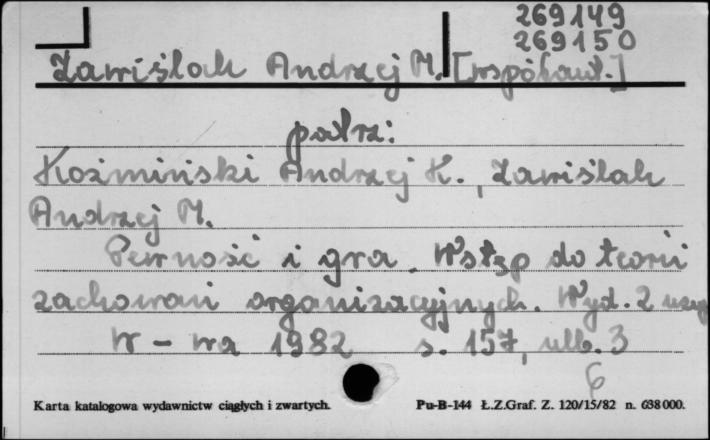 269149
269150
Zawiślak Andrzej M. [współaut.]
patrz:
Koźmiński Andrzej K., Zawiślak
Andrzej M.
Pewność i gra. Wstęp do teorii
zachowań organizacyjnych. Wyd. 2
W-wa 1982 s. 157, nlb. 3
6
Karta katalogowa wydawnictw ciągłych i zwartych. Pu-B-144 Ł.Z.Graf. Z. 120/15/82 n. 638000.